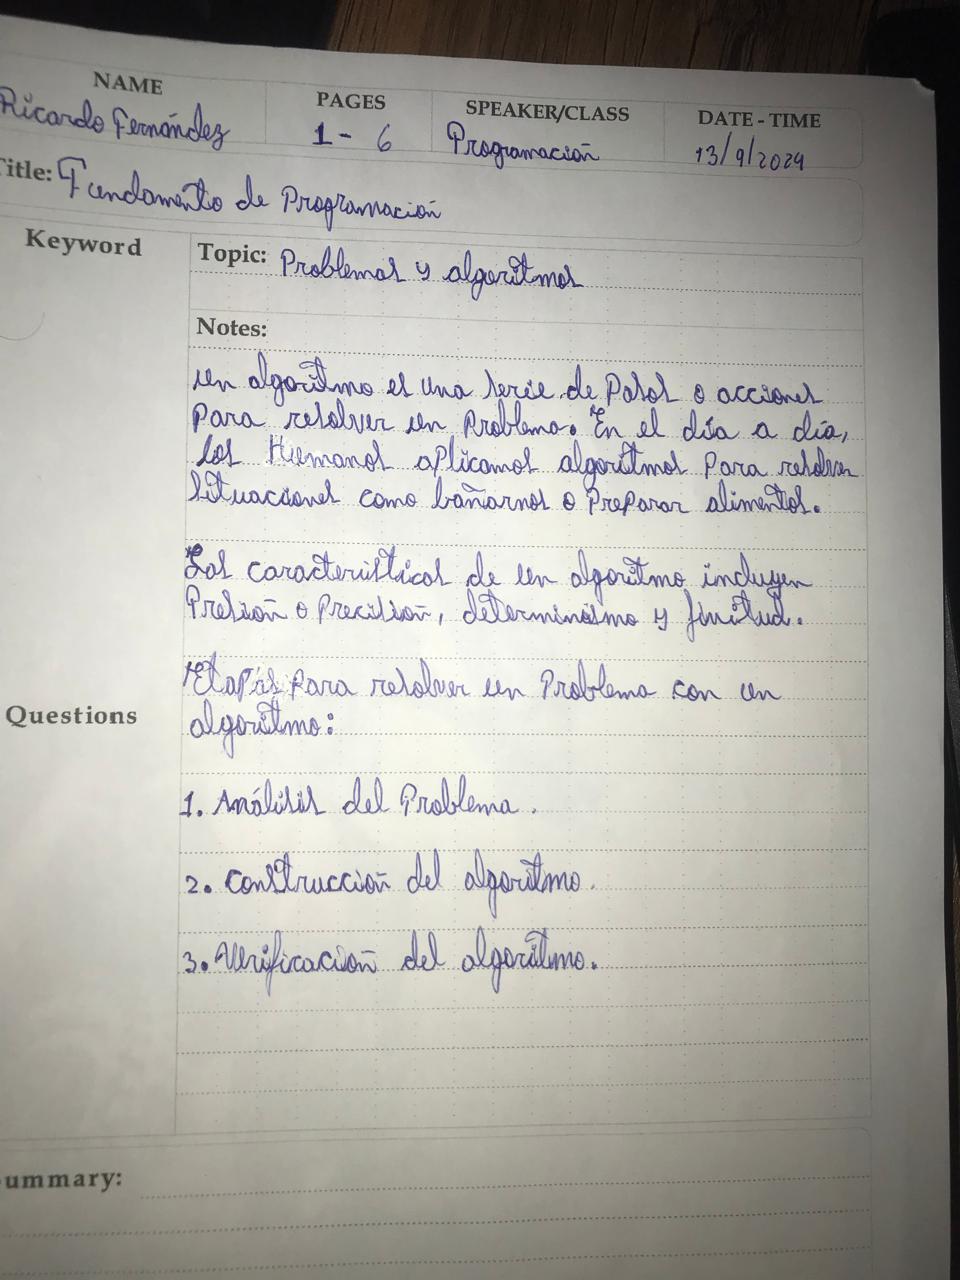 NAME
PAGES
SPEAKER/CLASS
DATE - TIME
Ricardo Fernández
1 - 6
Programación
13/9/2024
Title: Fundamento de Programación
Keyword
Topic: Problemas y algoritmos
Notes:
un algoritmo es una serie de Pasos o acciones
Para resolver un Problema. En el día a día,
los Humanos aplicamos algoritmos Para resolver
situaciones como bañarnos o Preparar alimentos.
Las características de un algoritmo incluyen
Presión o Precisión, determinismo y finitud.
Etapas Para resolver un Problema con un
Questions
algoritmo:
1. Análisis del Problema.
2. Construcción del algoritmo.
3. Verificación del algoritmo.
ummary: